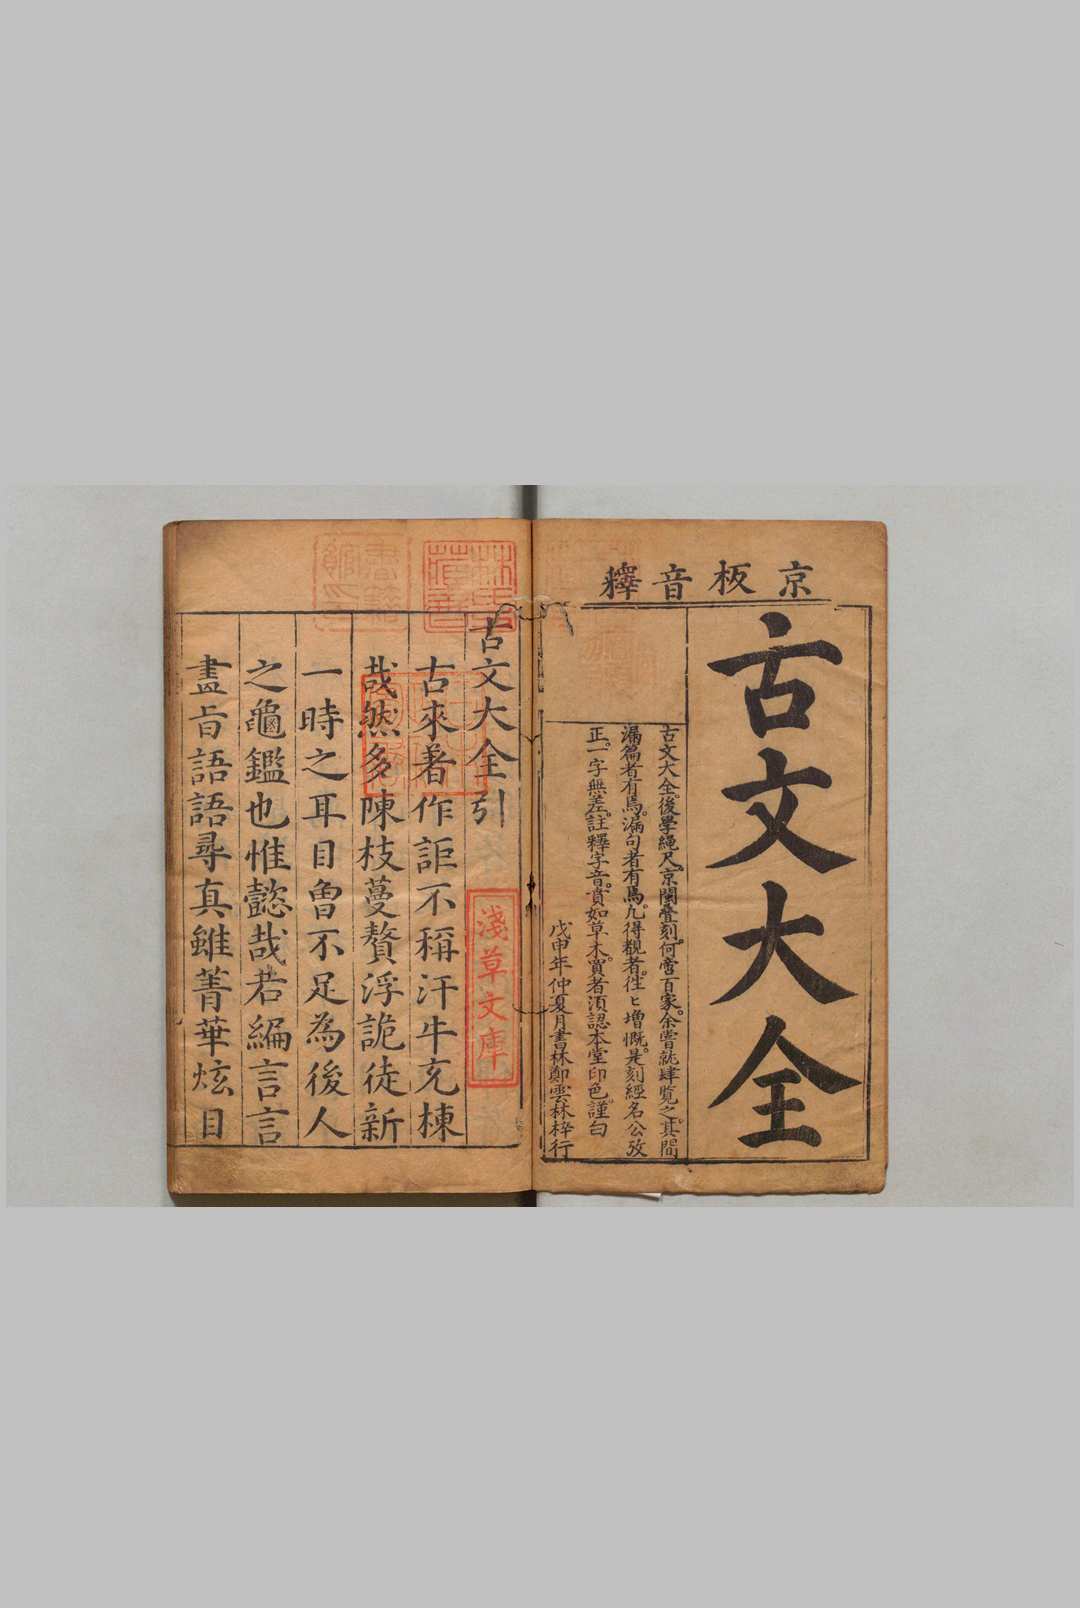 京板音釋
古文大全
古文大全後學繩尺京閩疊刻何啻百家余嘗就肆覽之其間
漏篇者有焉漏句者有焉凡得覩者往〻增慨是刻經名公攷
正一字無差註釋字音賁如草木買者須認本堂印色謹白
戊申年仲夏月書林鄭雲林梓行
古文大全引
古來著作詎不稱汗牛充棟
哉然多陳枝蔓贅浮詭徒新
一時之耳目曾不足為後人
之龜鑑也惟懿哉君編言言
盡旨語語尋真雖菁華炫目
淺草文庫
林氏藏書